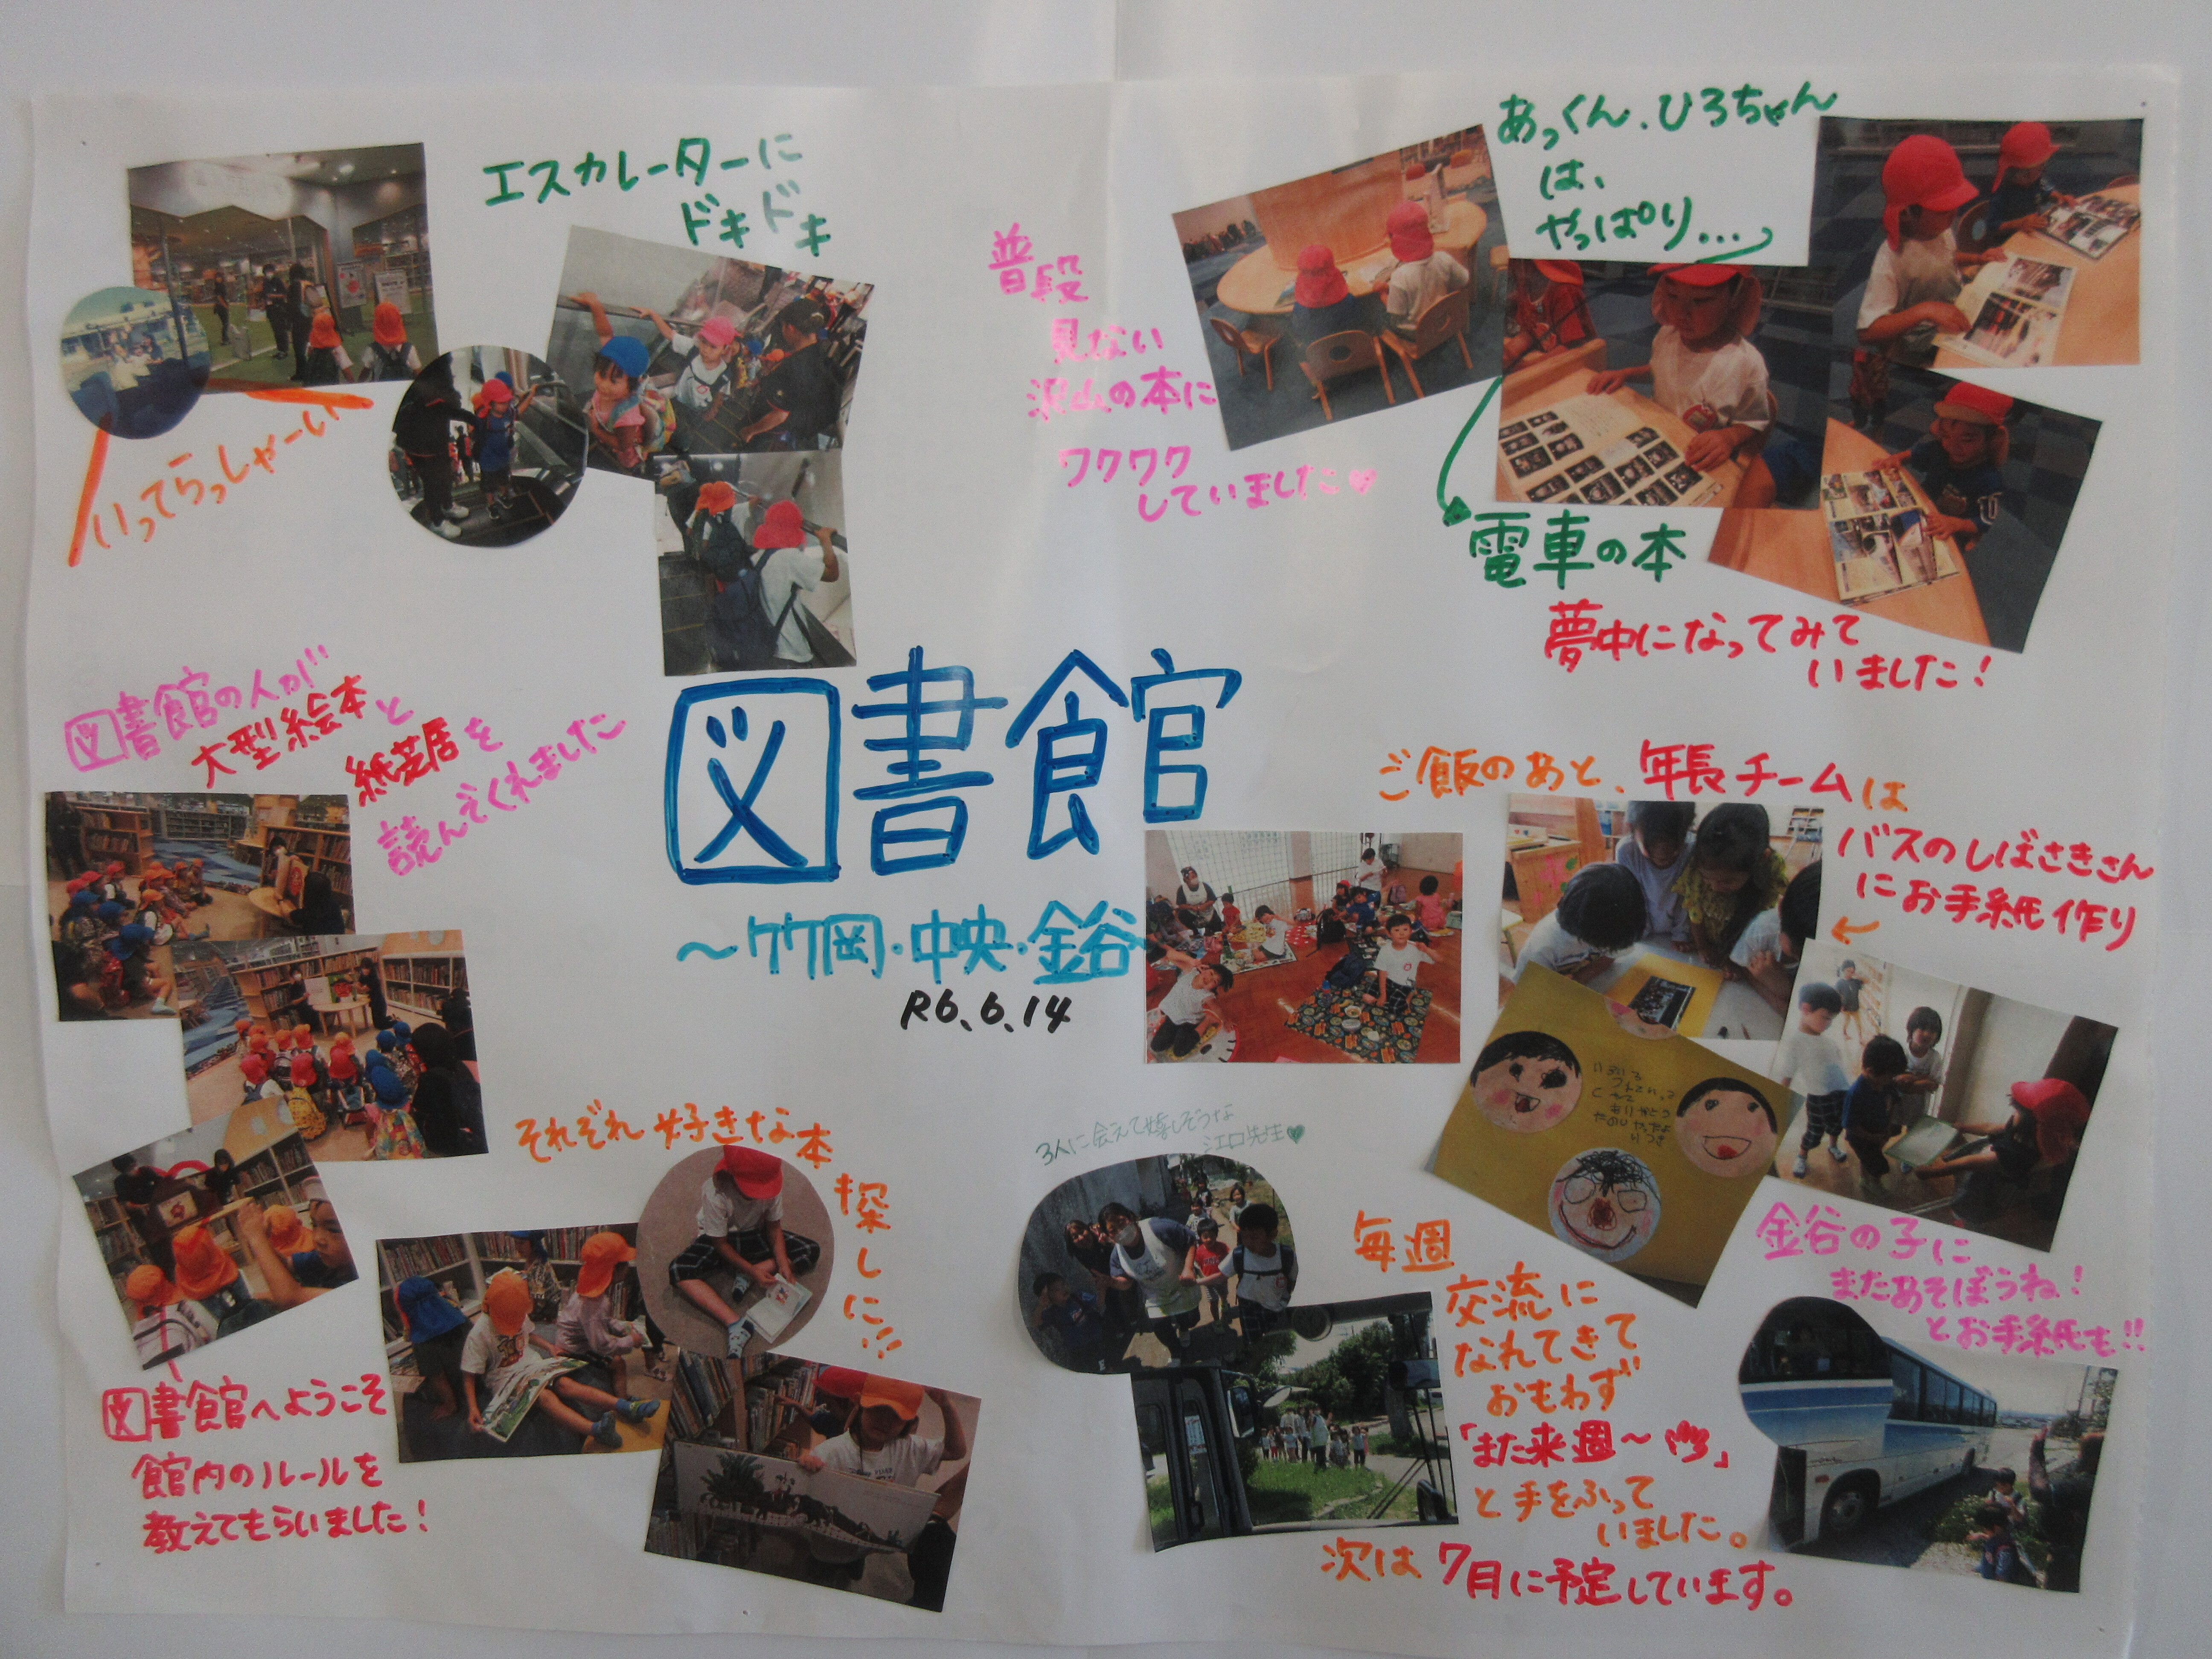 エスカレーターに
ドキドキ
いってらっしゃーい
普段
見ない
沢山の本に
ワクワク
していました♡
あっくん、ひろちゃん
は、
やっぱり…
電車の本
夢中になってみて
いました！
図書館の人が
大型絵本と
紙芝居を
読んでくれました
図書館
〜竹岡・中央・金谷
R6.6.14
ご飯のあと、年長チームは
バスのしばさきさん
にお手紙作り
それぞれ好きな本
探しに!!
3人に会えて嬉しそうな
江口先生♥
金谷の子に
またあそぼうね！
とお手紙も!!
図書館へようこそ
館内のルールを
教えてもらいました！
毎週
交流に
なれてきて
おもわず
「また来週〜」
と手をふって
いました。
次は7月に予定しています。